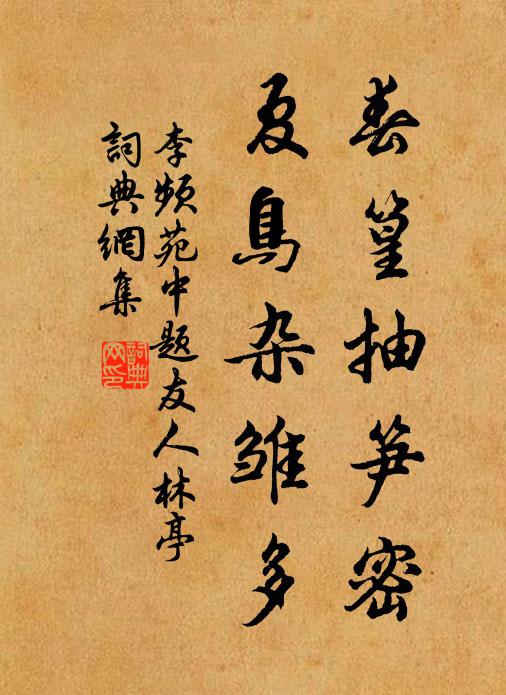 春篁抽笋密
夏鳥杂雏多
李频苑中题友人林亭
詞典網集
詞典
网印